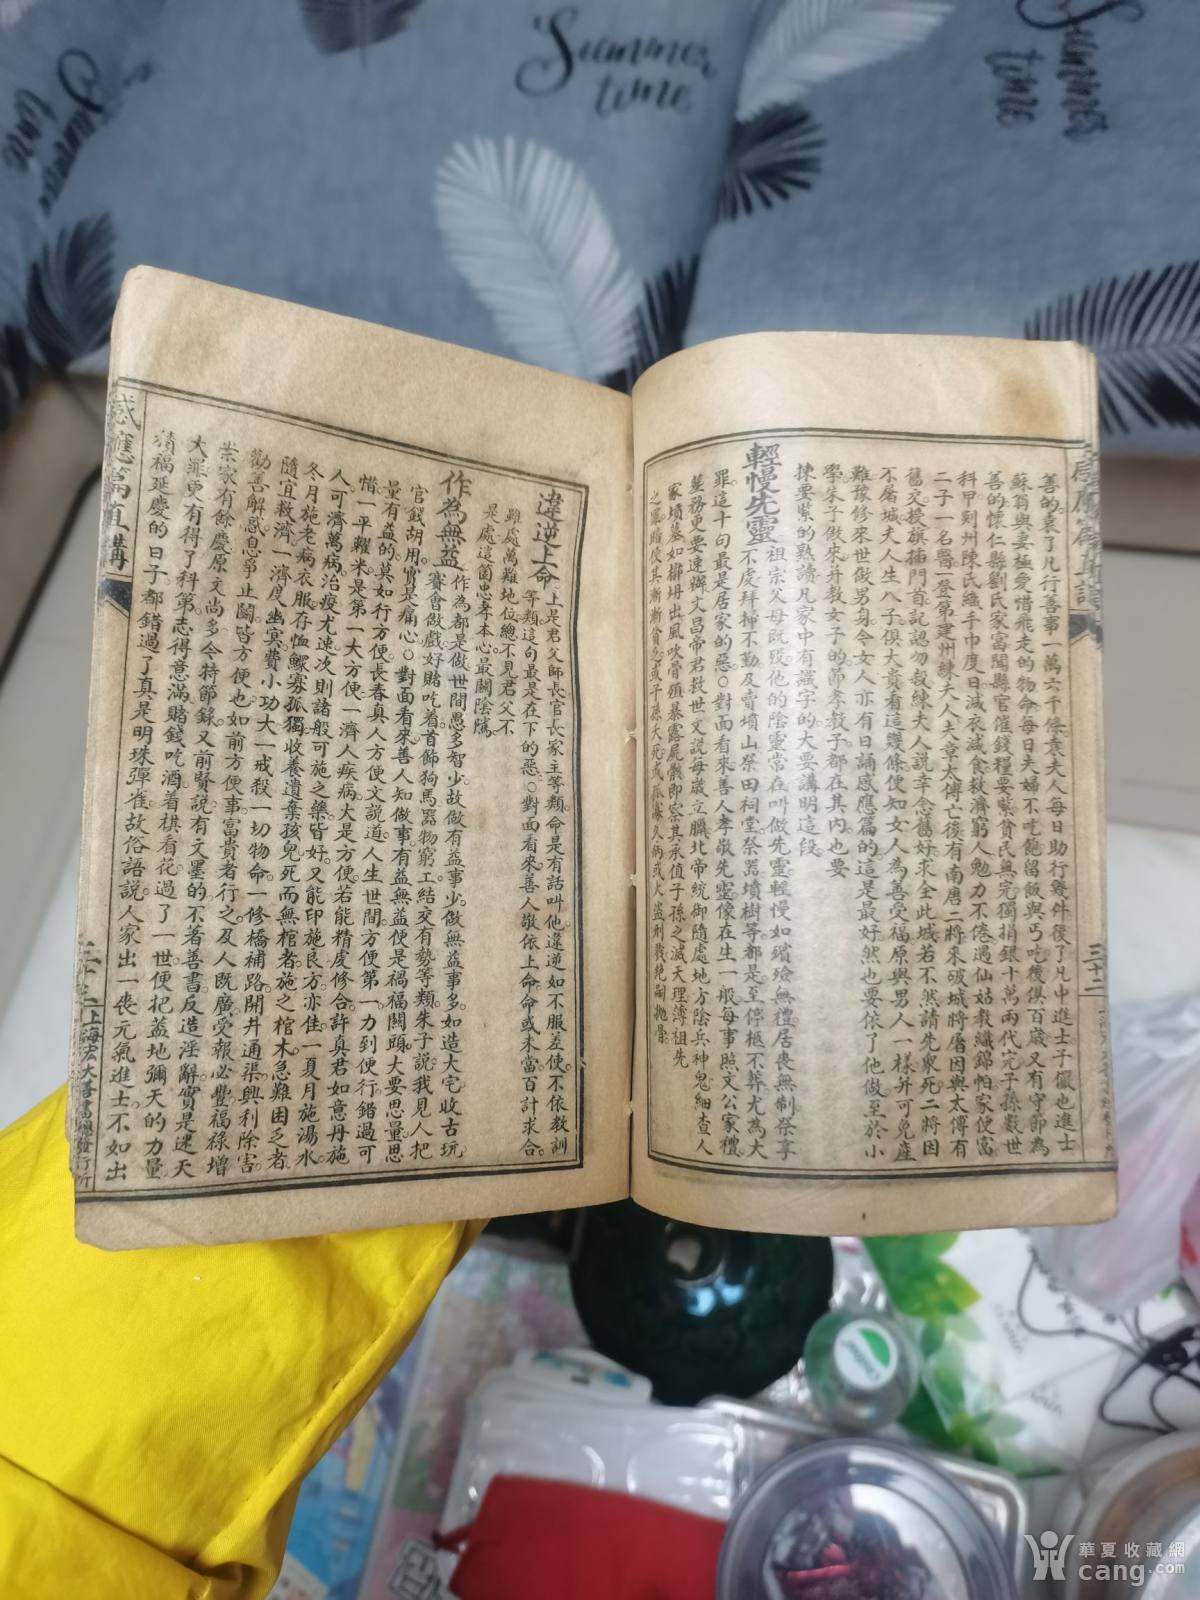 善的袁了凡行善事一萬六千條袁夫人每日助行幾件後了凡中進士子儼也進士
蘇翁與妻極愛惜飛走的物命每日夫婦不吃飽留飯與丐吃後俱百歲又有守節為
善的懷仁縣劉氏家富聞縣官催錢糧要緊貧民無完獨捐銀十萬兩代完子孫數世
科甲荊州陳氏織手巾度日減衣減食救濟窮人勉力不倦遇仙姑教織錦帕家便富
二子一名醫一登第建州練夫人夫章太傅亡後有南唐二將來破城將屠因與太傅有
舊交授旗插門首記認勿殺練夫人說幸念舊好求全此城若不然請先衆死二將因
不屠城夫人生八子俱大貴看這幾條便知女人為善受福原與男人一樣并可免產
難豫修來世做男身令女人亦有日誦感應篇的這是最好然也要依了他做至於小
學朱子做來并教女子的節孝教子都在其內也要
揀要緊的熟讀凡家中有識字的大要講明這段
輕慢先靈
祖宗父母既歿他的陰靈常在叫做先靈輕慢如殯殮無禮居喪無制祭享
不虔拜掃不勤及賣墳山祭田祠堂祭器墳樹等都是至停柩不葬尤為大
罪這十句最是居家的惡○對面看來善人孝敬先靈像在生一般每事照文公家禮
葬務更要速辦文昌帝君救世文說每歲立臘北帝統御隨處地方陰兵神鬼細查人
家墳墓如擗坍出風吹骨殖暴露屍骸即察其承值子孫之滅天理薄祖先
違逆上命
上是君父師長官長家主等類命是有話叫他違逆如不服差使不依教訓
等類這句最是在下的惡○對面看來善人敬依上命命或未當百計求合
雖處萬難地位總不見君父不
是處這箇忠孝本心最關陰隲
作為無益
作為都是做世間愚多智少故做有益事少做無益事多如造大宅收古玩
賽會做戲好賭吃着首飾狗馬器物窮工結交有勢等類朱子說我見人把
官錢胡用實是痛心○對面看來善人知做事有益無益便是禍福關頭大要思量思
量有益的莫如行方便長春真人方便文說道人生世間方便第一力到便行錯過可
惜一平糶米是第一大方便一濟人疾病大是方便若能精虔修合許真君如意丹施
人可濟萬病治疫尤速次則諸般可施之藥皆好又能印施良方亦佳一夏月施湯水
冬月施老病衣服存恤鰥寡孤獨收養遺棄孩兒死而無棺者施之棺木急難困乏者
隨宜救濟一濟度幽冥費小功大一戒殺一切物命一修橋補路開井通渠興利除害
勸善解惑息爭止鬭皆方便也如前方便事富貴者行之及人既廣受報必豐福祿增
崇家有餘慶原文尚多今特節錄又前賢說有文墨的不著善書反造淫辭實是迷天
大罪更有得了科第志得意滿賭錢吃酒着棋看花過了一世便把蓋地彌天的力量
積福延慶的日子都錯過了真是明珠彈雀故俗語說人家出一喪元氣進士不如出
感應篇直講
三十二
上海宏大善書